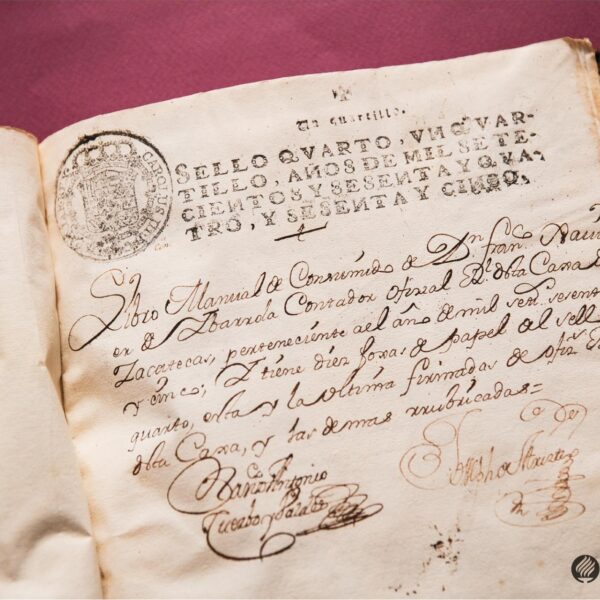 Un quartillo.
SELLO QVARTO, VN QVAR-
TILLO, AÑOS DE MIL SETE-
CIENTOS Y SESENTA Y QVA-
TRO, Y SESENTA Y CINCO.
CAROLUS III
Libro Manual de Consumido de Dn. Fran.co
er de Ybarrola Contador Ofizial Rl. dsta Caxa
Zacatecas, perteneciente a el año de mil set.s sesent
y cinco; Y tiene diez foxas de papel del sell
quarto, esta y la ultima firmadas de ofiz.s
dsta Caxa, y las demas rrubricadas=
Antonio